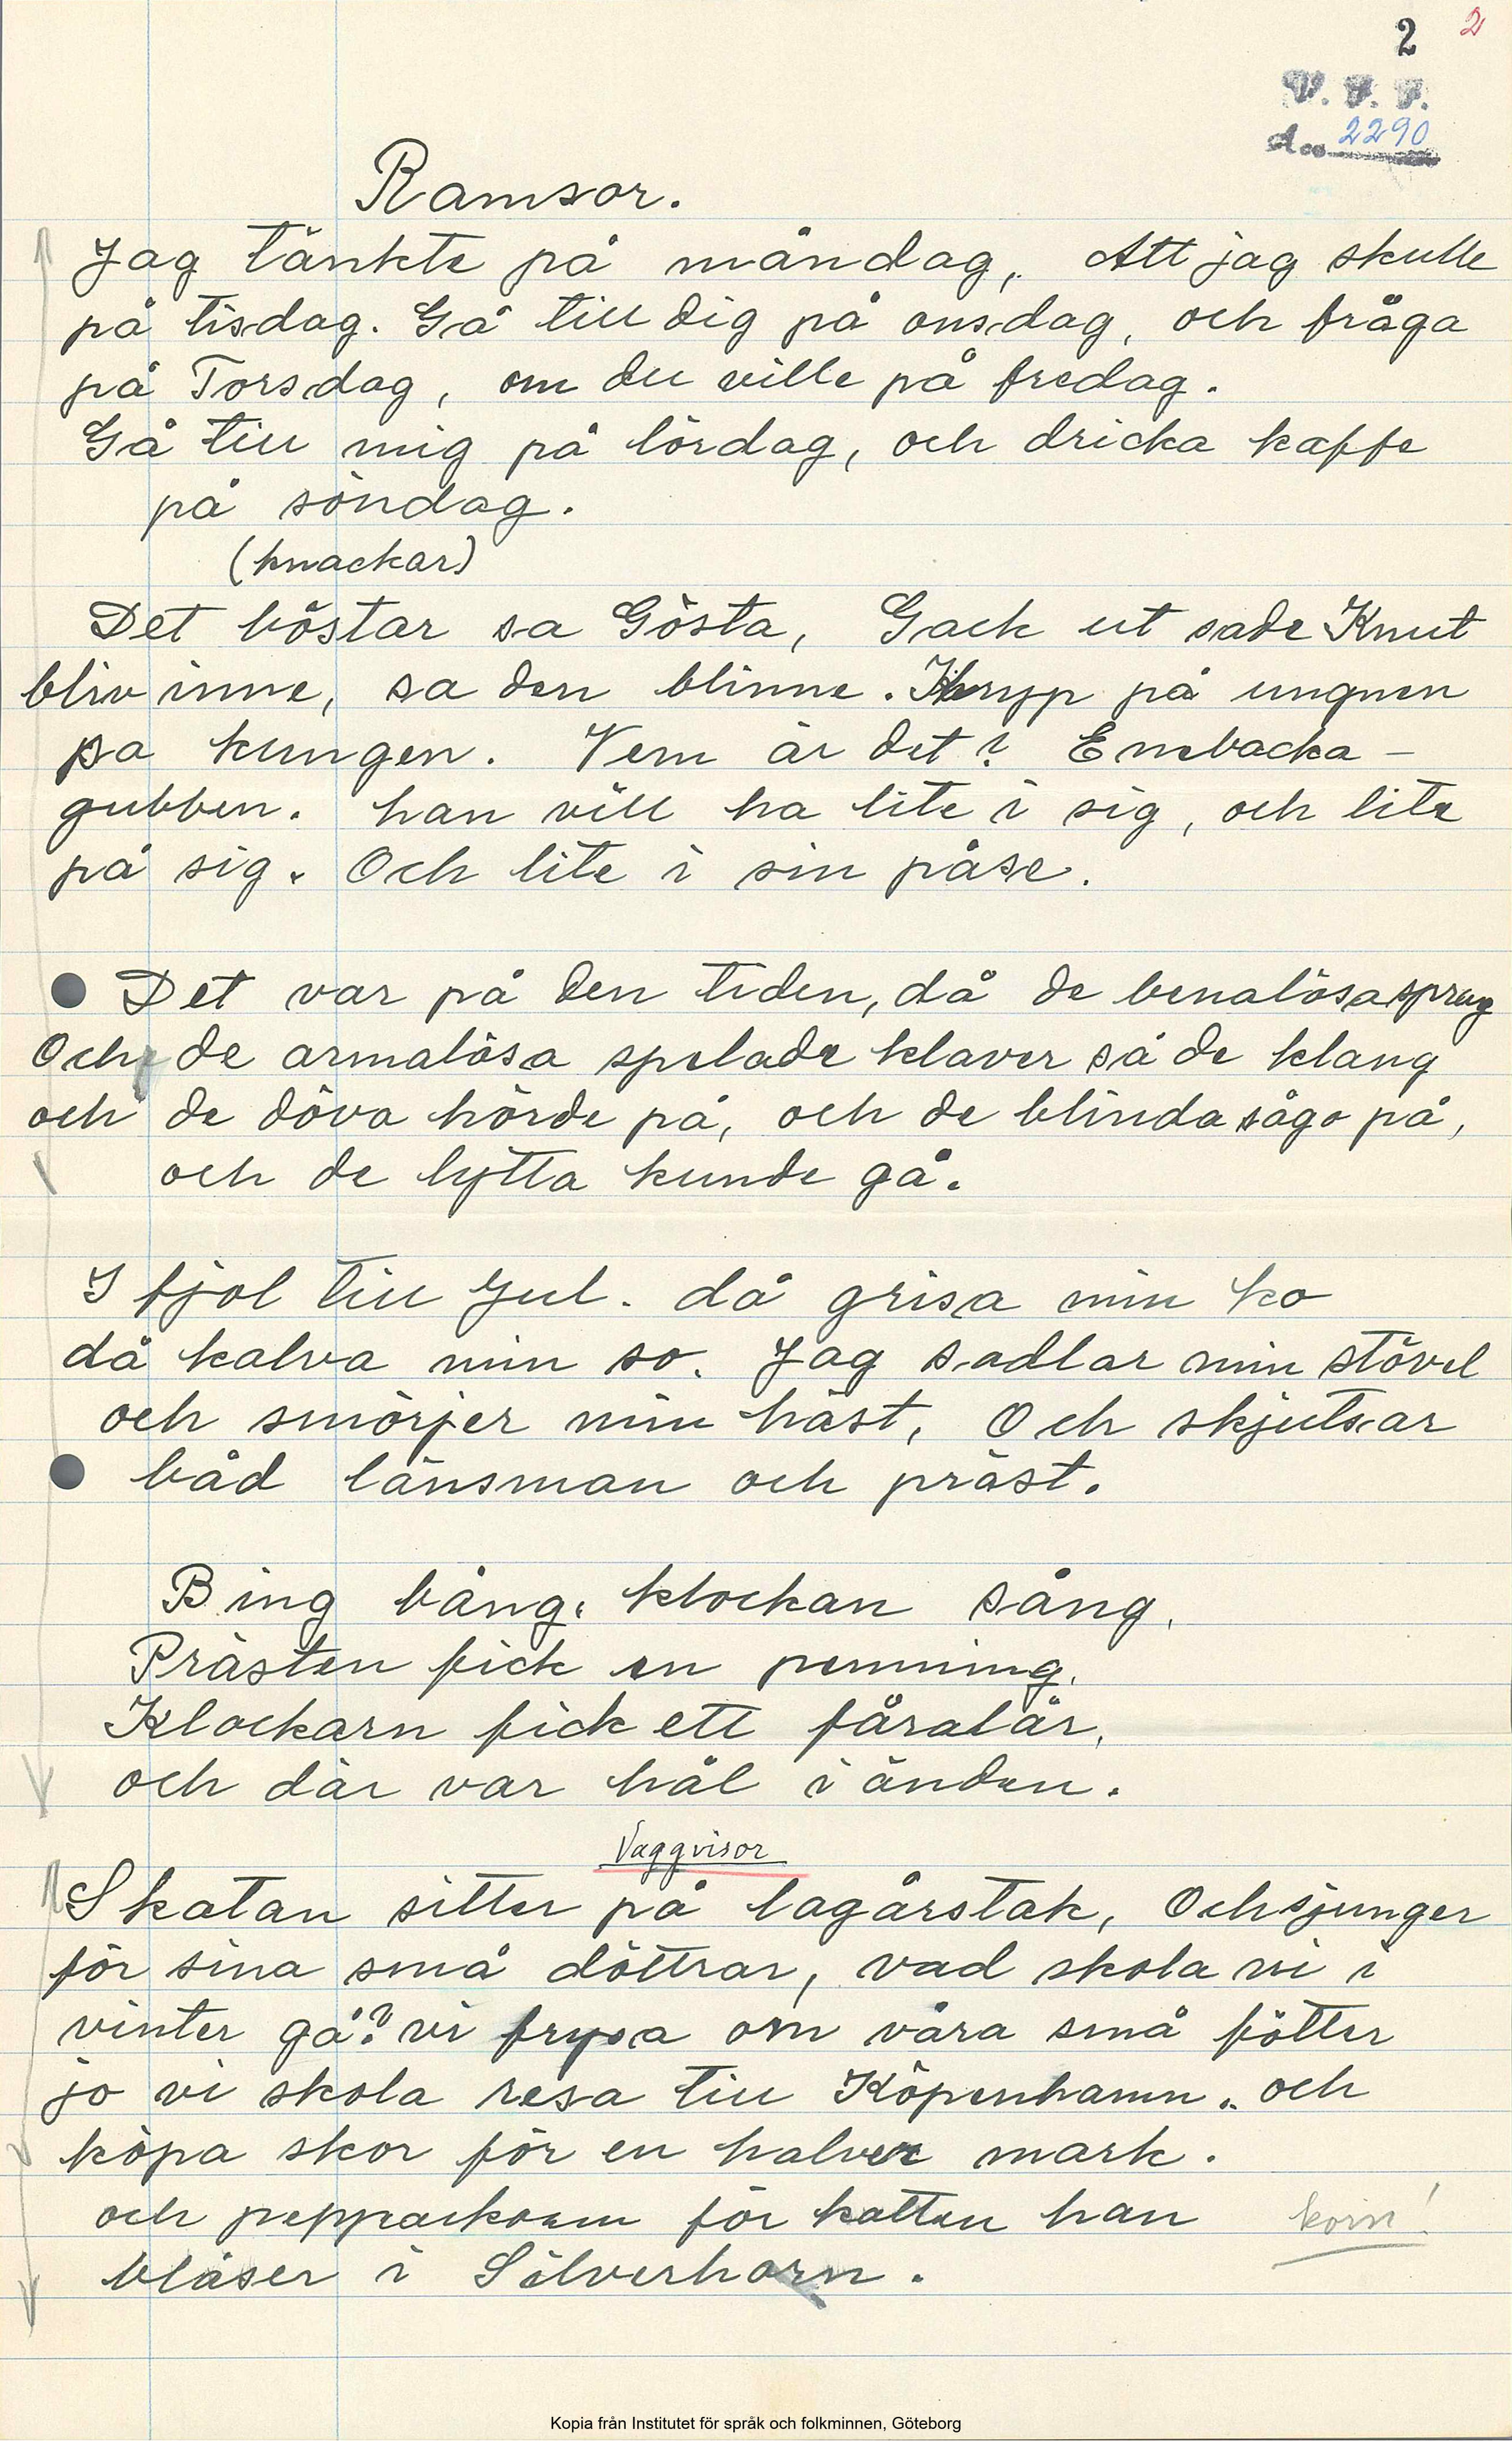 2 2
V. F. F.
2290
Ramsor.
Jag tänkte på måndag, Att jag skulle
på tisdag. Gå till dig på onsdag, och fråga
på Torsdag, om du ville på fredag.
Gå till mig på lördag, och dricka kaffe
på söndag.
(knackar)
Det böstar sa Gösta, Gack ut sade Knut
bliv inne, sa den blinne. Kryp på ungnen
sa kungen. Vem är det? Enebacka-
gubben. han vill ha lite i sig, och lite
på sig. Och lite i sin påse.
Det var på den tiden, då de benalösa sprang
Och de armalösa spelade klaver så de klang
och de döva hörde på, och de blinda sågo på,
och de lytta kunde gå.
I fjol till Jul. då grisa min ko
då kalva min so. Jag sadlar min stövel
och smörjer min häst, Och skjutsar
båd länsman och präst.
Bing bång. klockan sång.
Prästen fick en penning.
Klockarn fick ett fåralår,
och där var hål i änden.
Vaggvisor
Skatan sitter på lagårstak, Och sjunger
för sina små döttrar, vad skola vi i
vinter gå? vi frysa om våra små fötter
jo vi skola resa till Köpenhamn. och
köpa skor för en halver mark.
och pepparkorn för katten han korn!
blåser i Silverhorn.
Kopia från Institutet för språk och folkminnen, Göteborg